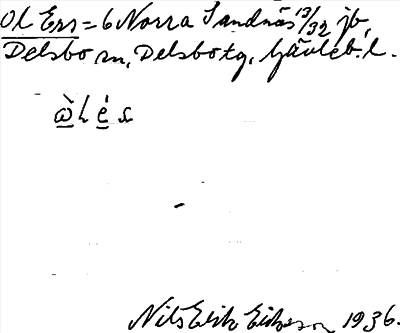 Ol Ers = 6 Norra Sandnäs 13/32 jb,
Delsbo sn, Delsbo tg, Gävleb. l.
ὼl é s
Nils Erik Eriksson 1936.